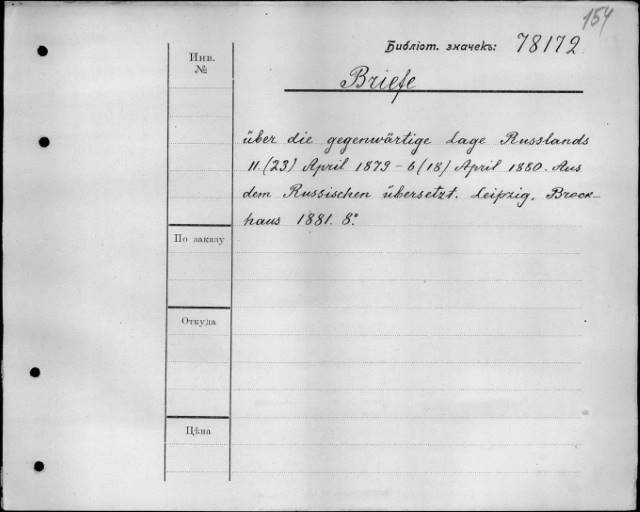 154
Библіот. значекъ: 78172
Инв.
№
Briefe
über die gegenwärtige Lage Russlands
11.(23) April 1879 - 6(18) April 1880. Aus
dem Russischen übersetzt. Leipzig, Brock-
haus 1881. 8.°
По заказу
Откуда
Цѣна